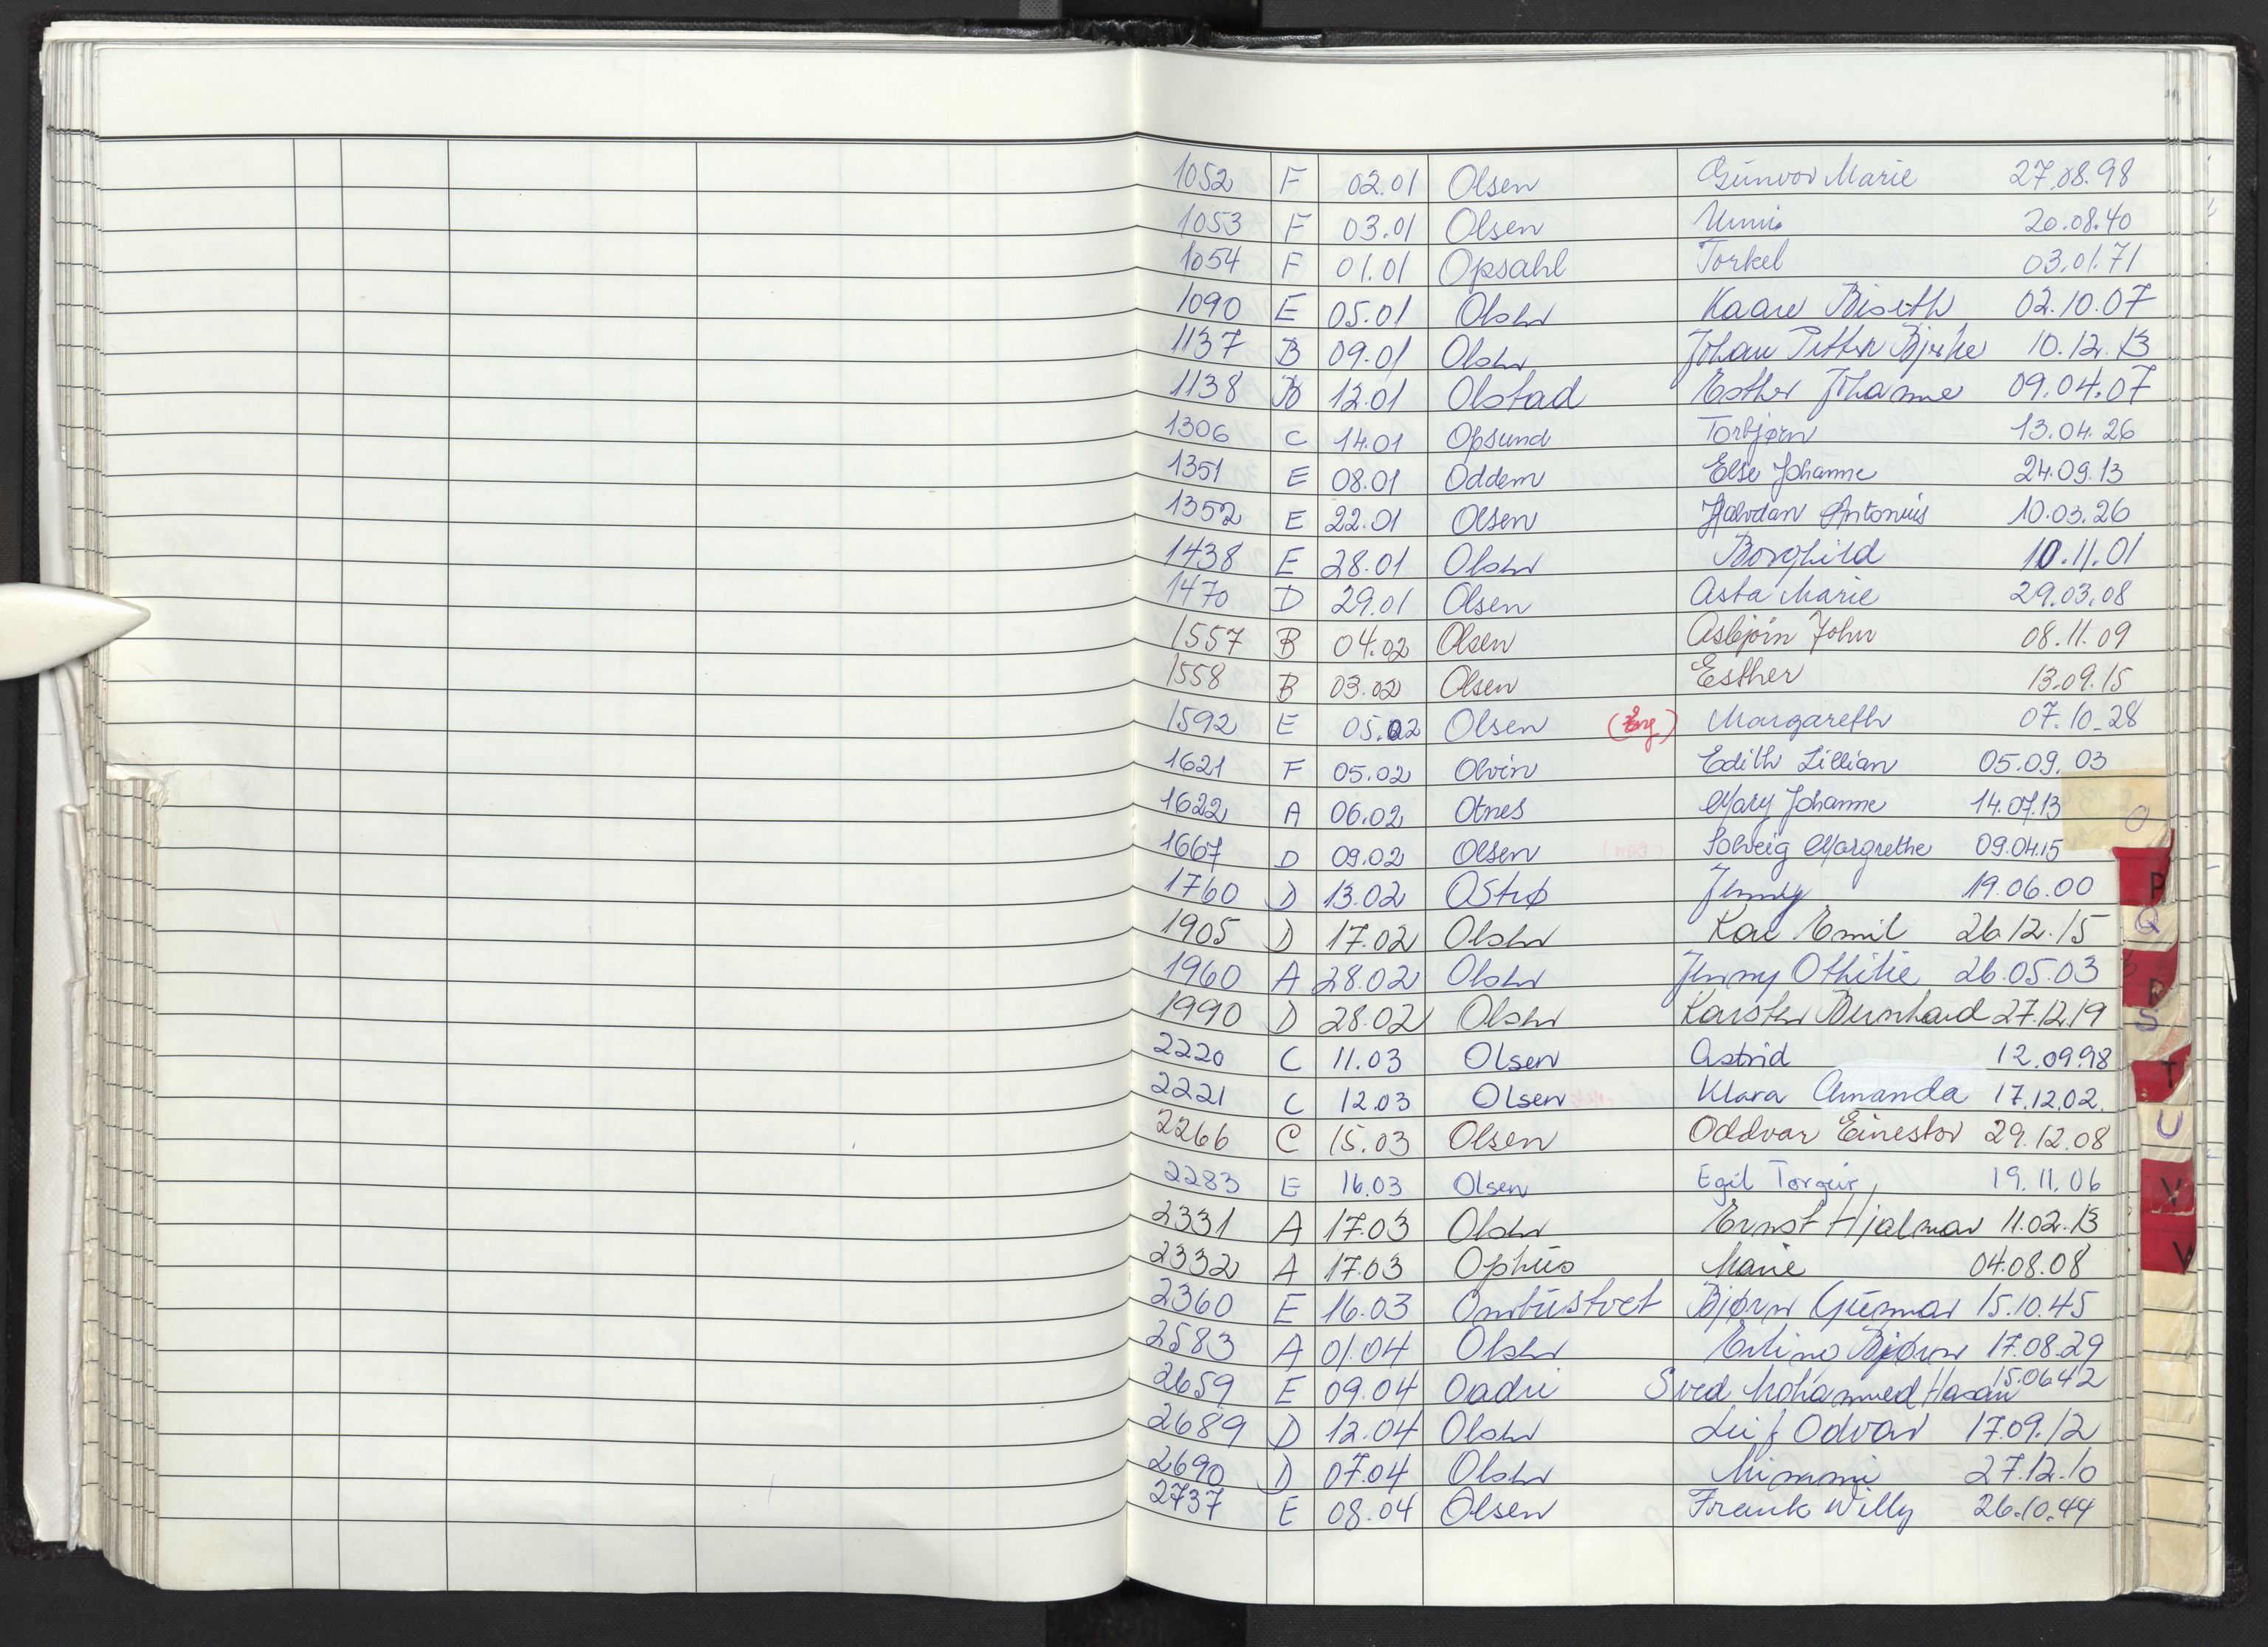 1052 F 02.01 Olsen Gunvor Marie 27.08.98
1053 F 03.01 Olsen Unni 20.08.40
1054 F 01.01 Opsahl Torkel 03.01.71
1090 E 05.01 Olsen Kaare Biseth 02.10.07
1137 B 09.01 Olsen Johan Petter Bjerke 10.12.13
1138 B 12.01 Olstad Esther Johanne 09.04.07
1306 C 14.01 Opsund Torbjørn 13.04.26
1351 E 08.01 Oddem Else Johanne 24.09.13
1352 E 22.01 Olsen Halvdan Antonius 10.03.26
1438 E 28.01 Olsen Borghild 10.11.01
1470 D 29.01 Olsen Asta Marie 29.03.08
1557 B 04.02 Olsen Asbjørn John 08.11.09
1558 B 03.02 Olsen Esther 13.09.15
1592 E 05.02 Olsen Margareth 07.10.28
1621 F 05.02 Olvin Edith Lillian 05.09.03
1622 A 06.02 Otnes Mary Johanne 14.07.13
O
1667 D 09.02 Olsen Solveig Margrethe 09.04.15
1760 D 13.02 Ostrø Jenny 19.06.00
P
1905 D 17.02 Olsen Kåre Emil 26.12.15
Q
1960 A 28.02 Olsen Jenny Othilie 26.05.03
R
1990 D 28.02 Olsen Karsten Bernhard 27.12.19
S
2220 C 11.03 Olsen Astrid 12.09.98
T
2221 C 12.03 Olsen Klara Amanda 17.12.02.
2266 C 15.03 Olsen Oddvar Einestor 29.12.08
U
2283 E 16.03 Olsen Egil Torgeir 19.11.06
V
2331 A 17.03 Olsen Ernst Hjalmar 11.02.13
2332 A 17.03 Ophus Marie 04.08.08
2360 E 16.03 Ombustvet Bjørn Gunnar 15.10.45
2583 A 01.04 Olsen Erling Bjørn 17.08.29
2659 E 09.04 Mohammed Hasan 15.06.42
2689 D 12.04 Olsen Leif Odvar 17.09.12
2690 D 07.04 Olsen Mimmi 27.12.10
2737 E 08.04 Olsen Frank Willy 26.10.44